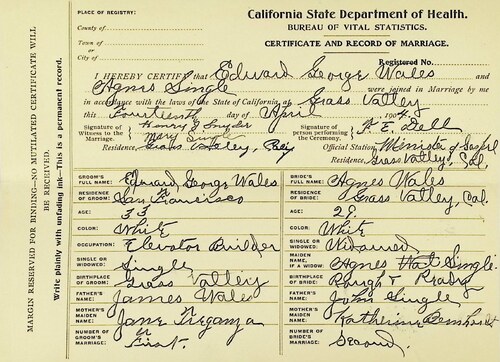 PLACE OF REGISTRY:
County of
Town of
or
City of
California State Department of Health.
BUREAU OF VITAL STATISTICS.
CERTIFICATE AND RECORD OF MARRIAGE.
Registered No.
I HEREBY CERTIFY that Edward George Wales and
Agnes Single were joined in Marriage by me
in accordance with the laws of the State of California, at Grass Valley
this Fourteenth day of April 1904.
Signature of Witness to the Marriage. Henry J. Snyder
Mary Single
Residence, Grass Valley,
Signature of person performing the Ceremony. F. E. Dell
Official Station, Minister of Gospel
Residence, Grass Valley, Cal.
GROOM'S FULL NAME: Edward George Wales
RESIDENCE OF GROOM: San Francisco
AGE: 33
COLOR: White
OCCUPATION: Elevator Builder
SINGLE OR WIDOWED: Single
BIRTHPLACE OF GROOM: Grass Valley
FATHER'S NAME: James Wales
MOTHER'S MAIDEN NAME: Jane Treganza
NUMBER OF GROOM'S MARRIAGE: First.
BRIDE'S FULL NAME: Agnes Wales
RESIDENCE OF BRIDE: Grass Valley, Cal.
AGE: 29.
COLOR: White
SINGLE OR WIDOWED: Widowed
MAIDEN NAME, IF A WIDOW: Agnes Single
BIRTHPLACE OF BRIDE: Rough & Ready
FATHER'S NAME: John Single
MOTHER'S MAIDEN NAME: Katherine
NUMBER OF BRIDE'S MARRIAGE: Second.
MARGIN RESERVED FOR BINDING—NO MUTILATED CERTIFICATE WILL
BE RECEIVED.
Write plainly with unfading ink—This is a permanent record.